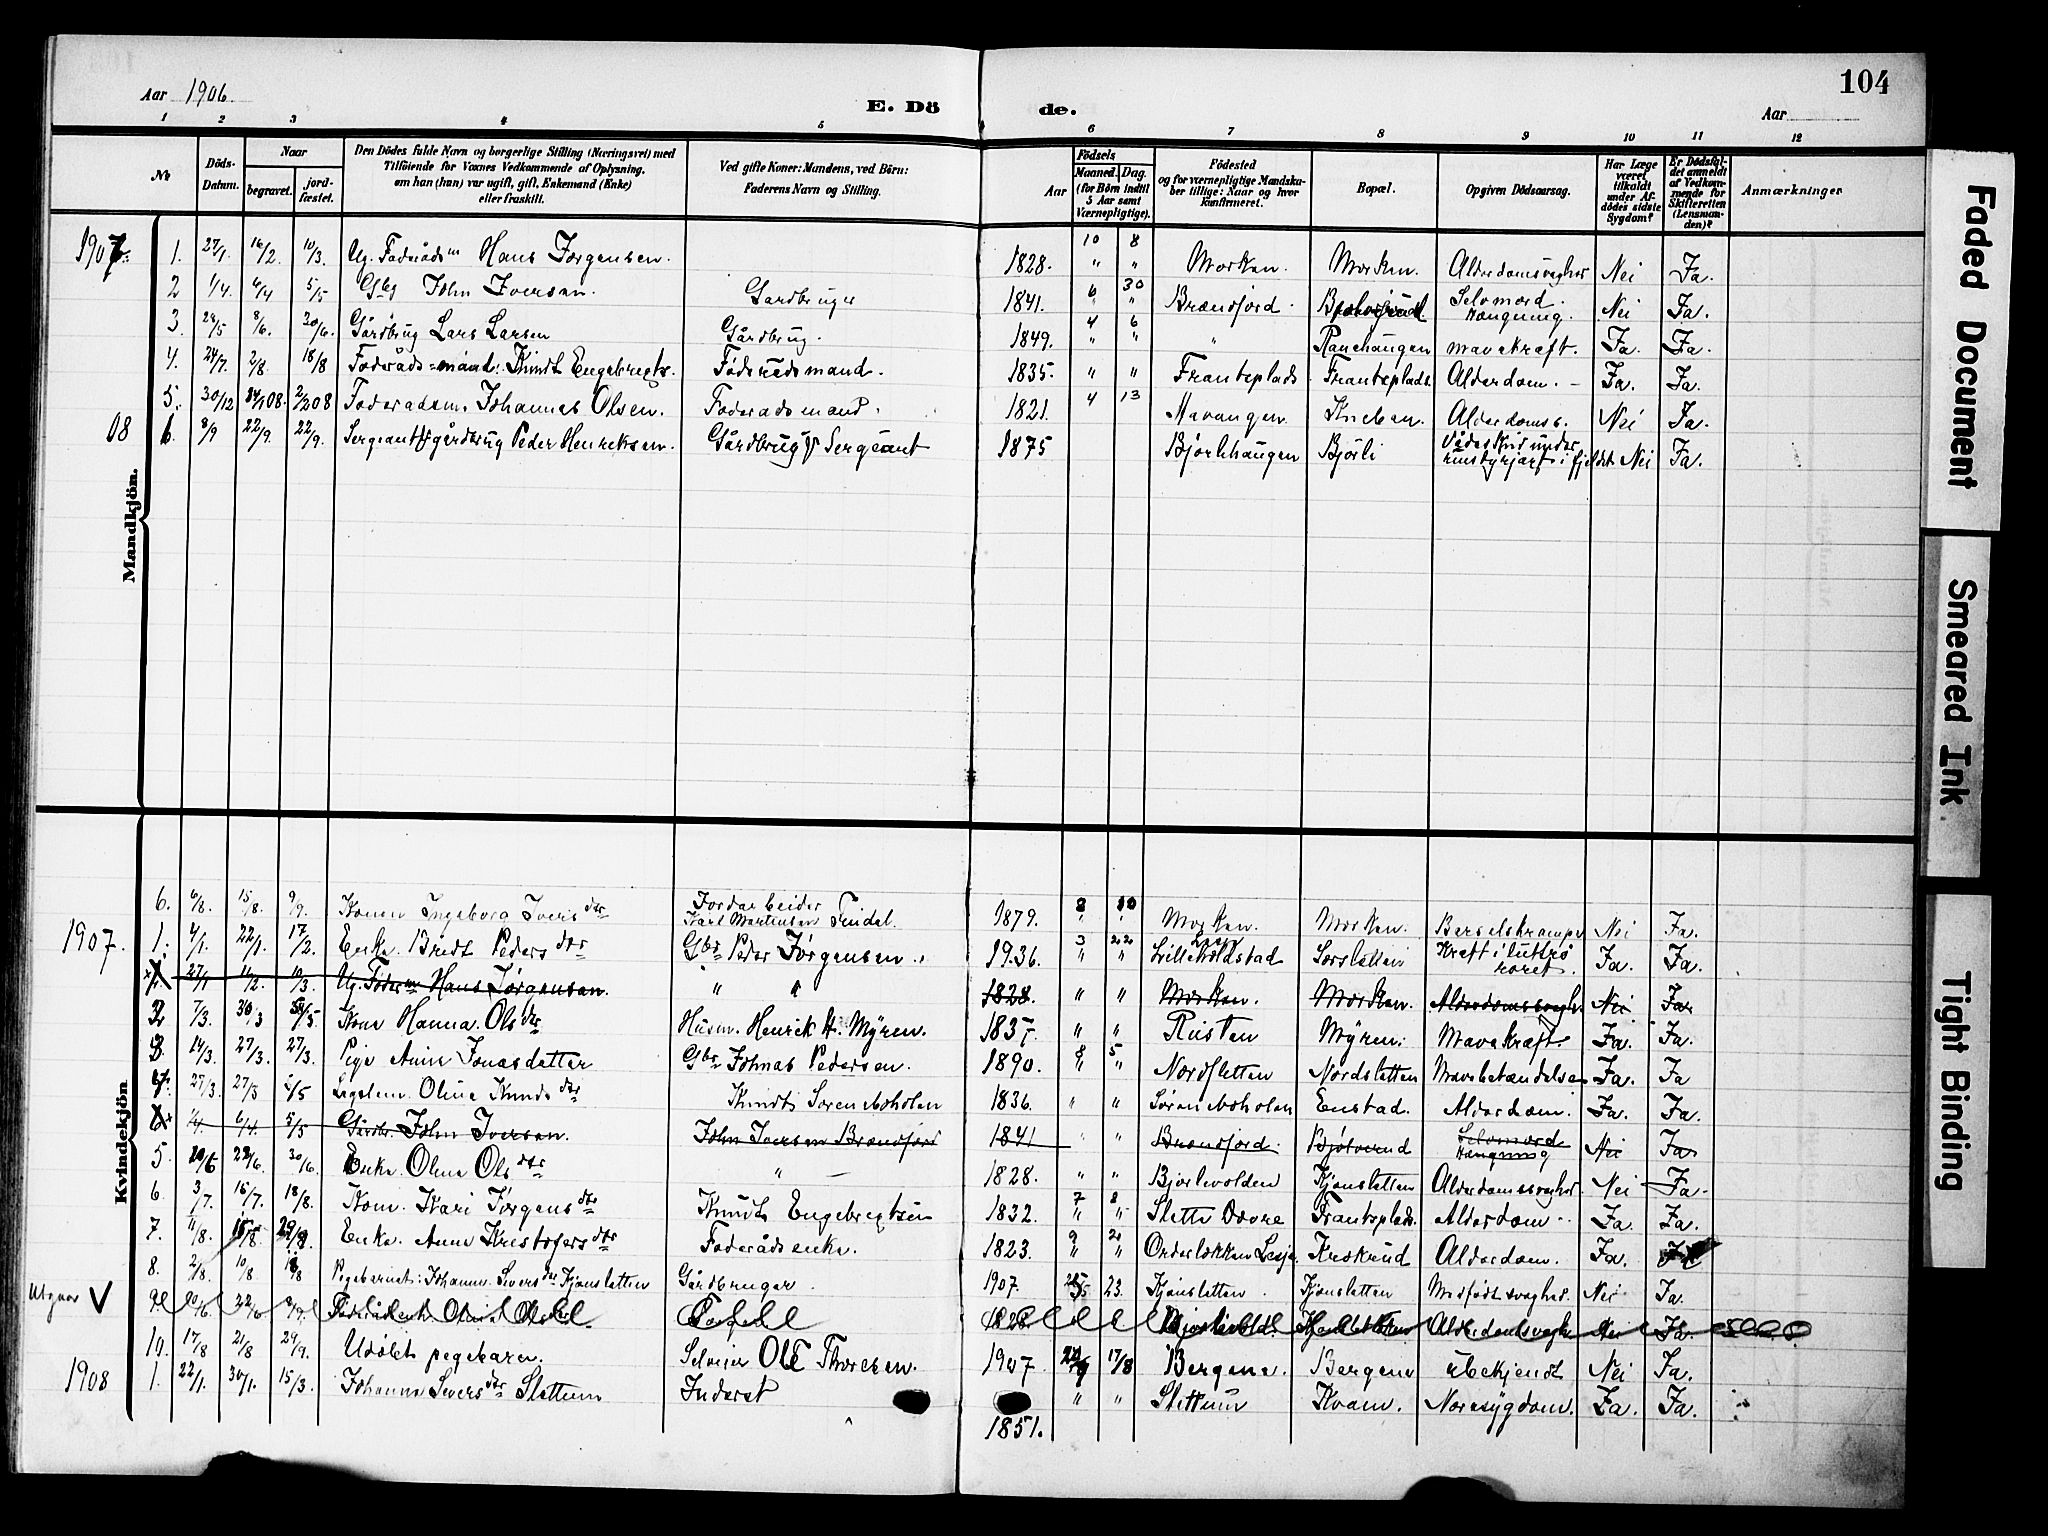 104
Aar 1906.
E. Dö de.
Aar
1 2 3 4 5 6 7 8 9 10 11 12
No
Döds-Datum.
Naar
begravet.
jord-fæstet.
Den Dödes fulde Navn og borgerlige Stilling (Næringsvei) med
Tilföiende for Voxnes Vedkommende af Oplysning,
om han (hun) var ugift, gift, Enkemand (Enke)
eller fraskilt.
Ved gifte Koner: Mandens, ved Börn:
Faderens Navn og Stilling.
Aar
Födsels
Maaned. Dag.
(for Börn indtil
5 Aar samt
Værnepligtige).
Födested
og for værnepligtige Mandska-
ber tillige: Naar og hvor
konfirmeret.
Bopæl.
Opgiven Dödsaarsag.
Har Læge
været
tilkaldt
under Af-
dödes sidste
Sygdom?
Er Dödsfal-
det anmeldt
af Vedkom-
mende for
Skifteretten
(Lensman-
den)?
Anmærkninger
Mandkjön.
1907 1. 27/1 16/2. 10/3. Ug. Foderådsm Hans Jørgensen. 1828. 10 8 Morken. Morken. Alderdomssvaghed Nei Ja.
2 1/4. 6/4 5/5 Gbg John Iversen. Gardbruger 1841. 6 30 Brændjord. Selvmord. Hængning. Nei Ja.
3. 8/6. 30/6. Gårdbrug Lars Larsen Gårdbrug. 1849. 4 6 " Ranehaugen mavekræft. Ja. Ja.
4. 24/7. 2/8. 18/8 Foderåds-mand: Knudt Engebregts. Fødrådsmand. 1835. " " Frantsplads Frantsplads. Alderdom. – Ja. Ja.
5. 30/12 2/2 08 Foderadsm. Johannes Olsen. Foderadsmand. 1821. 4 13 Alderdoms s. Nei Ja.
08 6. 8/9 22/9. 22/9. Sergeant & gårdbrug Peder Henriksen. Gårdbrug & Sergeant 1875 Bjørlihaugen Bjørli Vådeskud under rensdyrjagt i fjeldet Nei Ja.
Kvindekjön
6. 6/8. 15/8. 9/9. Konen Ingeborg Iversdtr Jordarbeider Karl Martinsen Tindel. 1879. 8 10 Morken. Morken. Barselskrampe Nei Ja.
1907. 1. 4/1. 22/1. 17/2. Enke. Bredt Pedersdtr Gbr Peder Jørgensen. 1936. 3 22 Lilleholdstad Kræft i luftrøret. Ja. Ja.
27/1 10/3. Ug. Foderm Hans Jørgensen. " " 1828. " " Morken. Morken. Alderdomssvagh. Nei Ja
2 7/3. 30/3 Kone Hanna Olsdtr Husm. Henrik H. Myren. 1837. " " Risten Myren. Mavekræft. Ja. Ja.
3. 14/3. 27/3. 27/3. Pige Anne Jonasdatter Gbr Johnas Pedersen. 1890. 8 5 Nordsletten Nordsletten Mavebetændelse Ja. Ja
4. 27/3. 27/3 5/5 Legdlem. Oline Knudsdtr 1836. " " Enstad. Alderdom. Ja. Ja.
1/4. 6/4. 5/5 Gårdbr. John Iversen. John Iversen Brændjord 1841 " " Brændjord. Selvmord Hængning Nei Ja
5. 20/6 22/6. 30/6. Enke. Oline Olsdtr " 1828. " " Bjørlivolden Kjønsletten Alderdomssvaghed. Nei Ja.
6. 3/7. 15/7. 18/8. Kone. Kari Jørgensdtr Knudt Engebregtsen 1832. 7 8 Slette Dovre Frantsplads. Alderdom. Ja. Ja.
7. 11/8. 15/8. 29/8. Enke. Anne Kristofersdtr Foderådsenke. 1823. 9 2 Lesja Kroskrud Alderdom. Ja.
8. 2/8. 10/8 18/8 Pegebarnet: Johanne Siversdtr Kjønsletten Gårdbruger. 1907. 23. Kjønsletten. Kjønsletten Medfødt svaghed. Nei Ja.
Utgaar V 20/6. 22/6 Foderådsenke Oline Olsd. 1828 " Bjørlivold. Alderdomssvagh. Nei Ja.
10. 17/8 21/8 29/9. Udøbt pegebarn. Selveier Ole Thoresen. 1907. 17/8 Bergene. Bergene ubekjendt Nei Ja.
1908 1. 22/1. 30/1. 15/3. Johanne Siversdtr Slettum Inderst 1851. " " Slettum Kvam. Nervesygdom. Ja. Ja.
Faded Document
Smeared Ink
Tight Binding